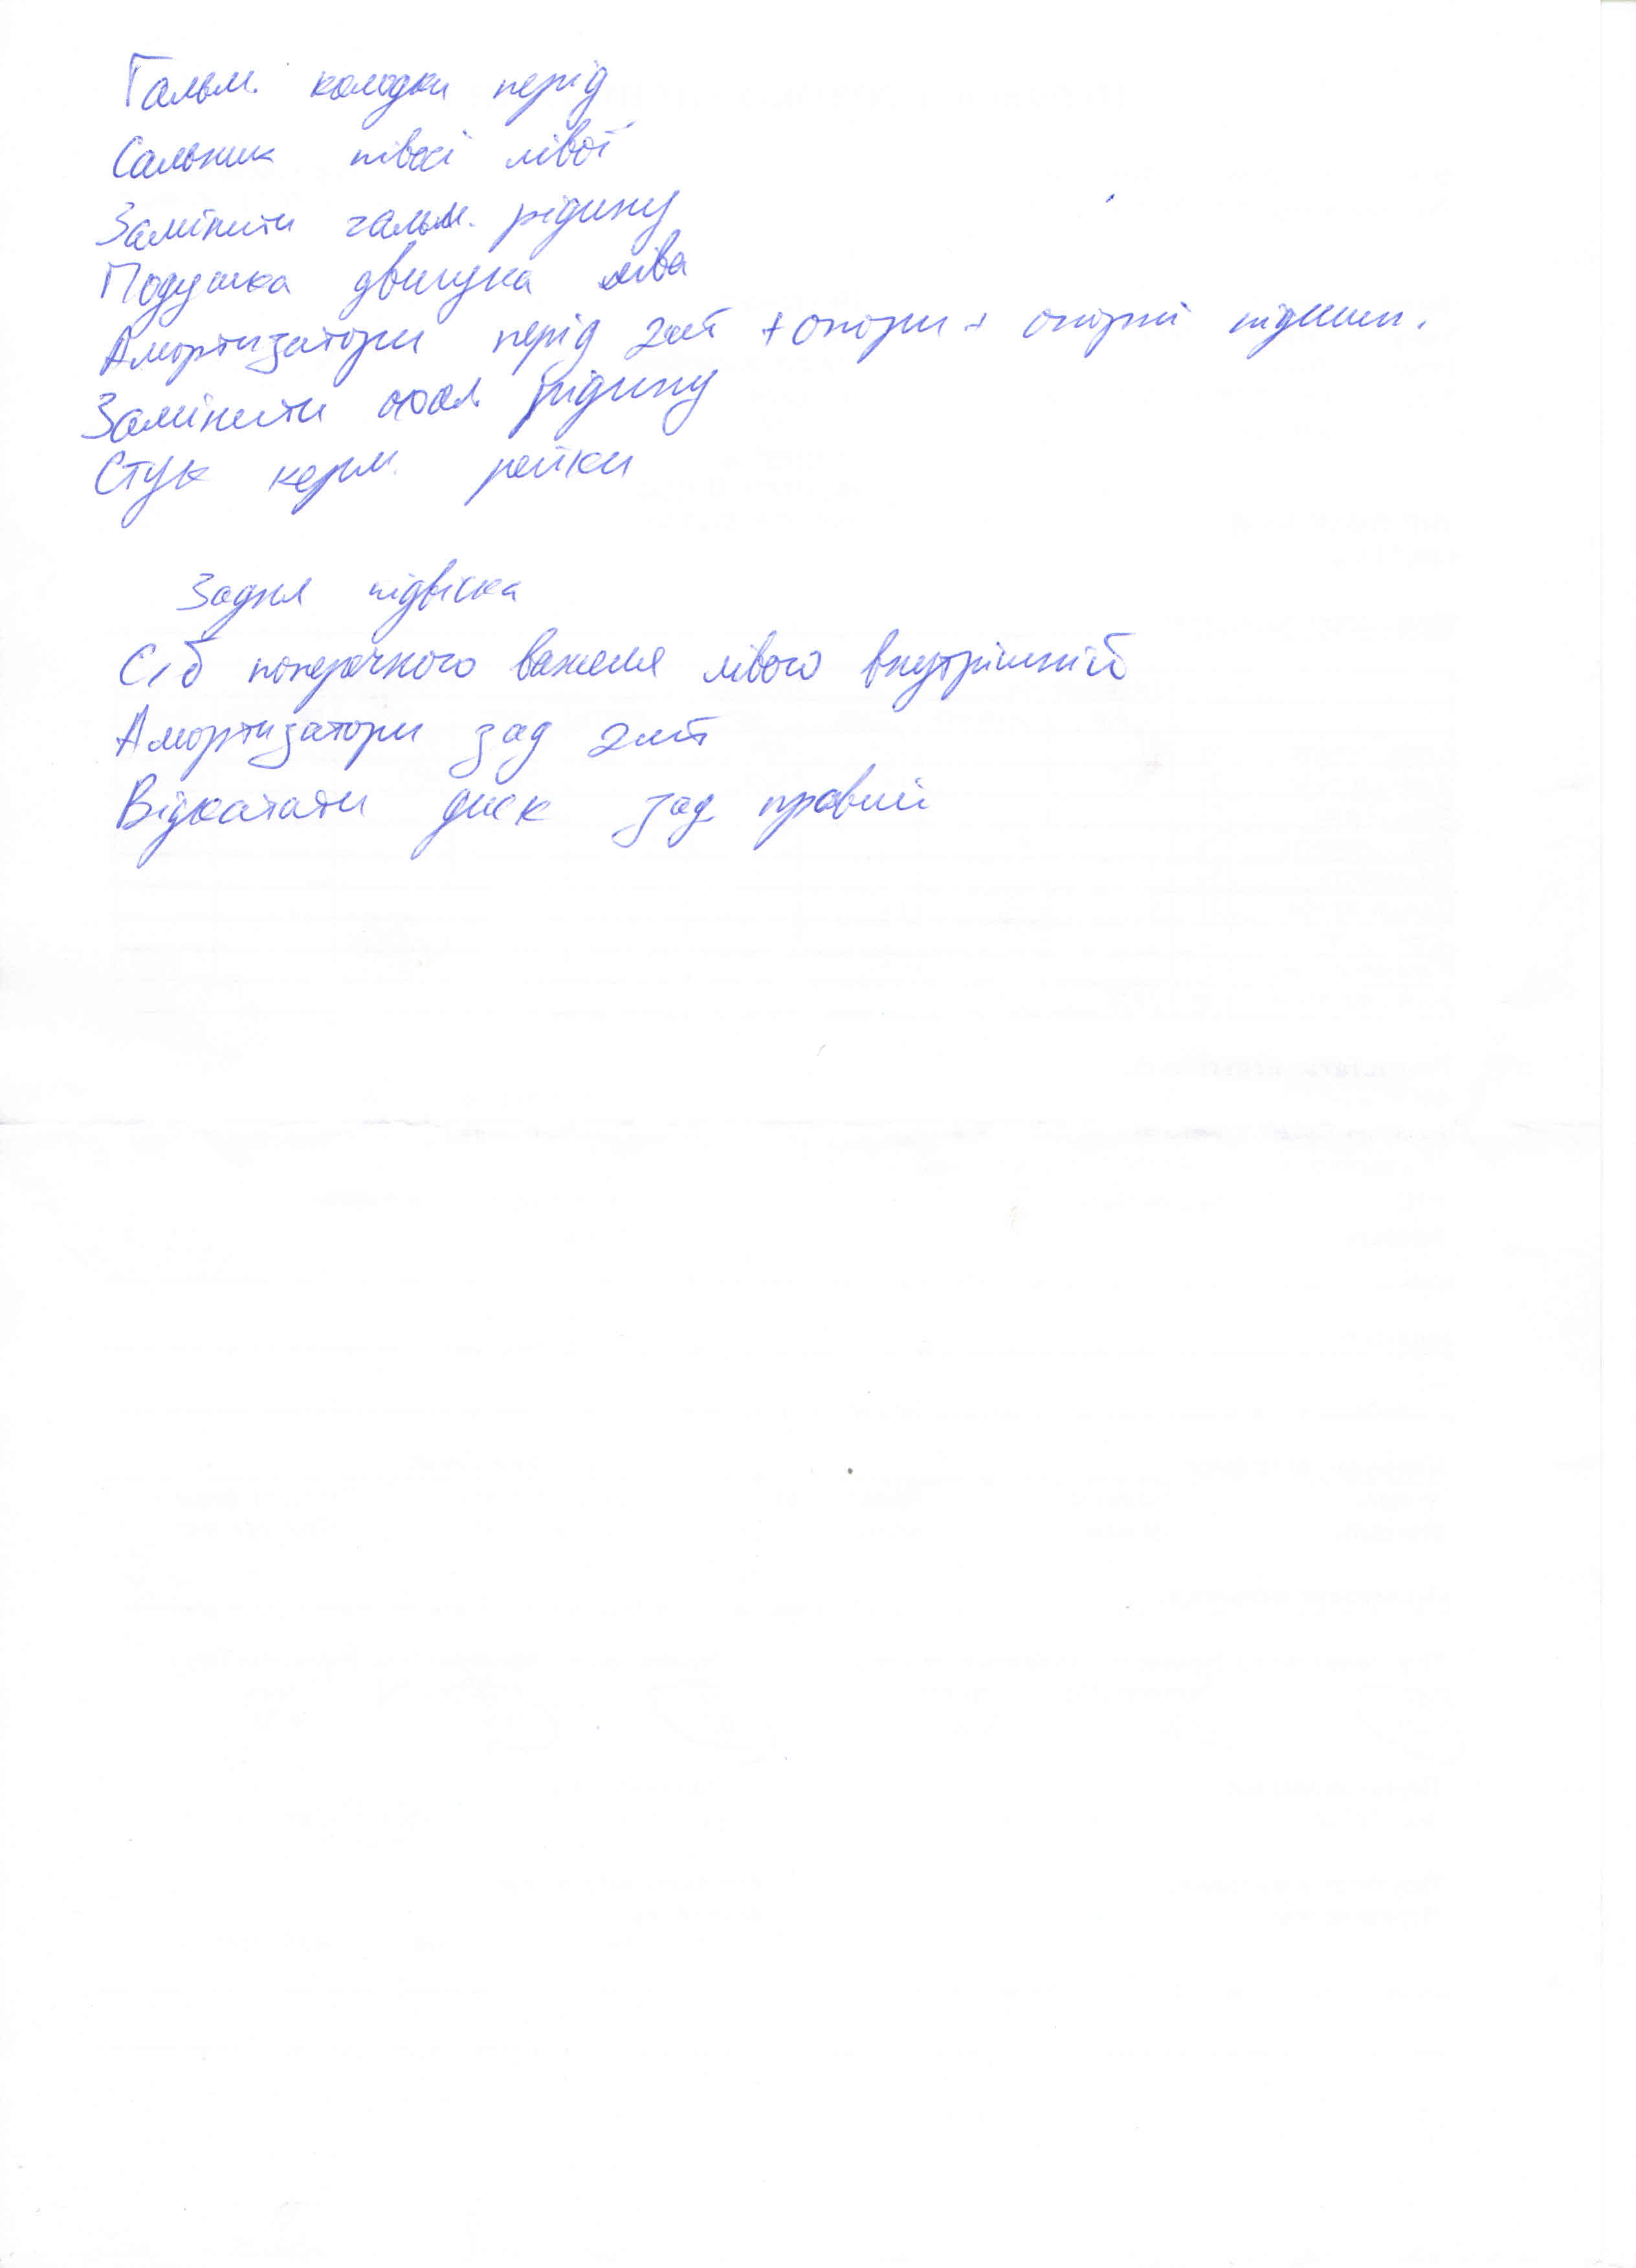 Гальм. колодки перід
Сальник півосі лівої
Замінити гальм. рідину
Подушка двигуна ліва
Амортизатори перід 2шт + опори + опорні підшип.
Замінити охол. рідину
Стук керм. рейки
Задня підвіска
С/б поперечного важеля лівого внутрішній
Амортизатори зад 2шт
Відкатати диск зад правий